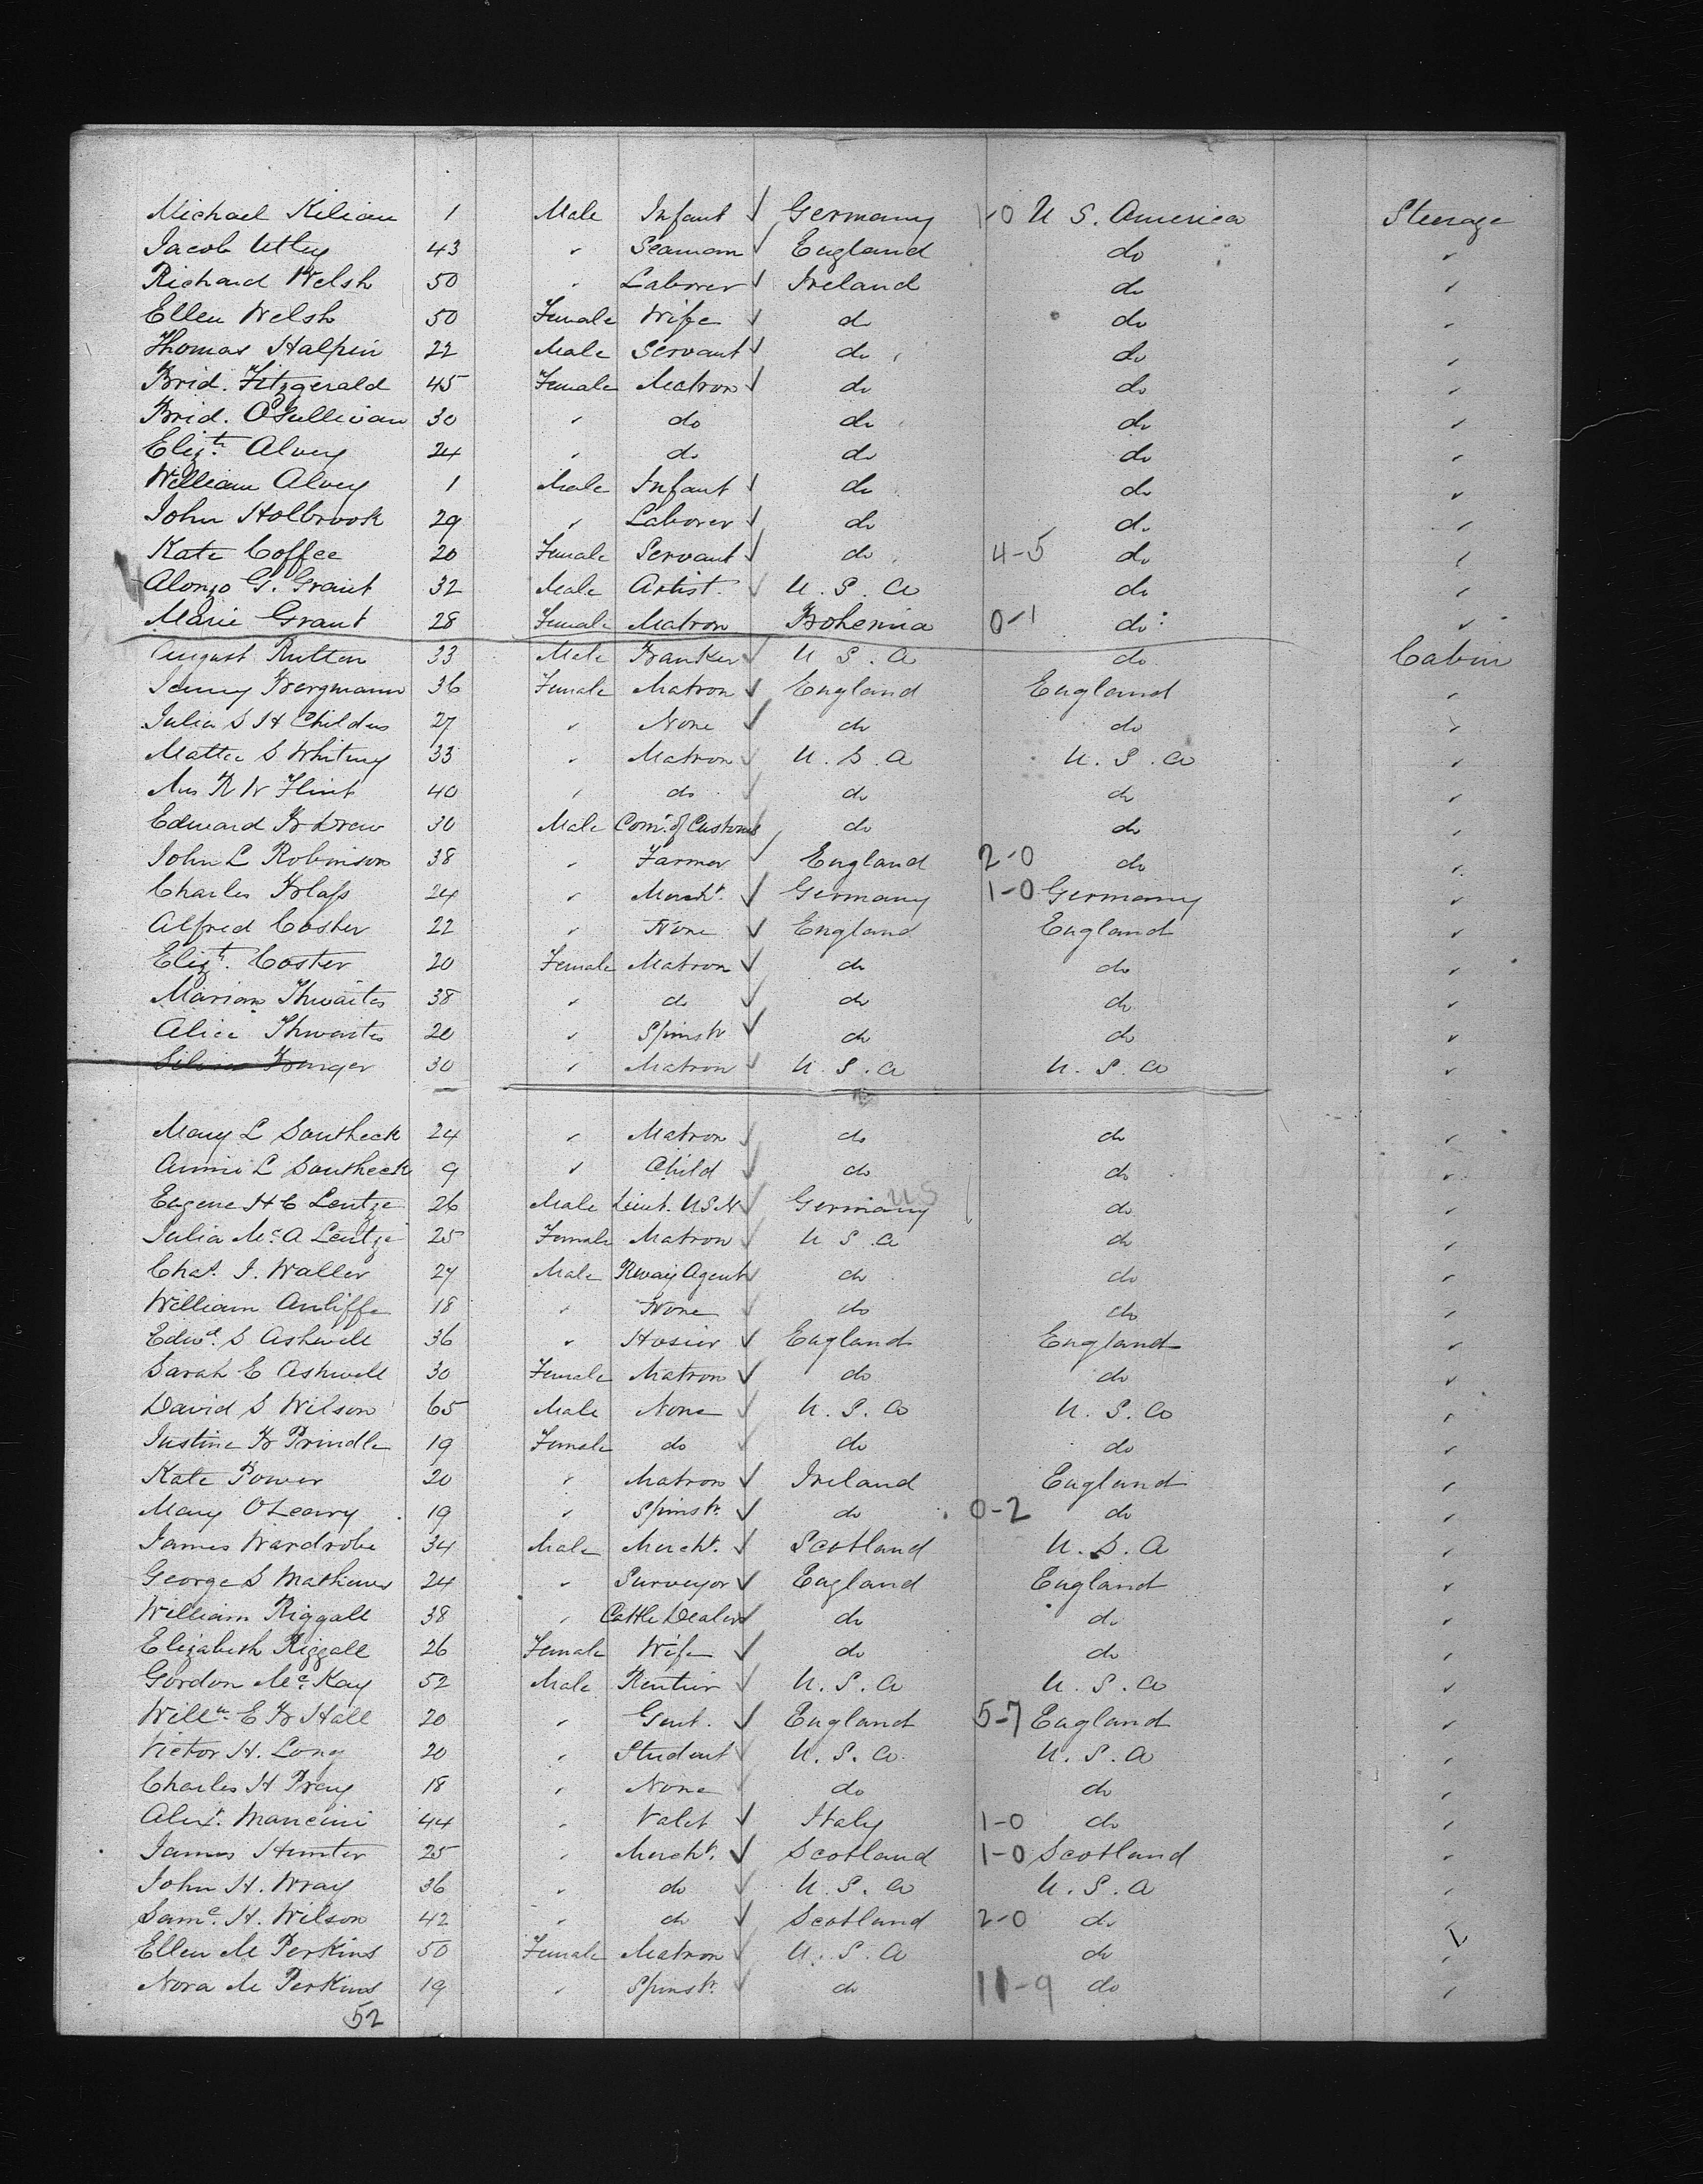 Michael Kilian 1 Male Infant ✓ Germany 1-0 U S. America Steerage
Jacob Utley 43 " Seaman ✓ England do "
Richard Welsh 50 " Laborer ✓ Ireland do "
Ellen Welsh 50 Female Wife ✓ do do "
Thomas Halpin 22 Male Servant ✓ do do "
Brid. Fitzgerald 45 Female Matron ✓ do do "
Brid. O'Sullivan 30 " do do do "
Elizth. Alvey 24 " do do do "
William Alvey 1 Male Infant ✓ do do "
John Holbrook 29 " Laborer ✓ do do "
Kate Coffee 20 Female Servant ✓ do 4-5 do "
Alonzo G. Grant 32 Male Artist. ✓ U. S. A do "
Marie Grant 28 Female Matron Bohemia 0-1 do "
August Rutten 33 Male Banker ✓ U S. A do Cabin
Jenny Bergmann 36 Female Matron ✓ England England "
Julia S H Childers 27 " None ✓ do do "
Mattie S Whitney 33 " Matron ✓ U. S. A U. S. A "
Mrs R W Flint 40 " do ✓ do do "
Edward B Drew 30 Male Comr. of Customs ✓ do do "
John L Robinson 38 " Farmer ✓ England 2-0 do "
Charles Blass 24 " Mercht. ✓ Germany 1-0 Germany "
Alfred Coster 22 " None ✓ England England "
Elizth. Coster 20 Female Matron ✓ do do "
Marion Thwaites 38 " do ✓ do do "
Alice Thwaites 20 " Spinstr ✓ do do "
Bunger 30 " Matron ✓ U. S. A U. S. A "
Mary L Southeck 24 " Matron ✓ do do "
Annie L Southeck 9 " Child ✓ do do "
Eugene H C Leutze 26 Male Lieut. USN ✓ Germany US do "
Julia Mc.A Leutze 25 Female Matron ✓ U S. A do "
Chas. J. Waller 27 Male Rway Agent ✓ do do "
William Anliffe 18 " None ✓ do do "
Edwd. S Ashwell 36 " Hosier ✓ England England "
Sarah E Ashwell 30 Female Matron ✓ do do "
David S Wilson 65 Male None ✓ U. S. A U. S. A "
Justine B Prindle 19 Female do ✓ do do "
Kate Power 20 " Matron ✓ Ireland England "
Mary O'Leary 19 " Spinstr. ✓ do 0-2 do "
James Wardrobe 34 Male Mercht. ✓ Scotland U. S. A "
George S Mathews 24 " Surveyor ✓ England England "
William Riggall 38 " Cattle Dealer ✓ do do "
Elizabeth Riggall 26 Female Wife ✓ do do "
Gordon Mc.Kay 52 Male Rentier ✓ U. S. A U. S. A "
Willm. E B Hall 20 " Gent. ✓ England 5-7 England "
Victor H. Long 20 " Student ✓ U. S. A U. S. A "
Charles H Pray 18 " None ✓ do do "
Alexr. Mancini 44 " Valet ✓ Italy 1-0 do "
James Hunter 25 " Mercht. ✓ Scotland 1-0 Scotland "
John H. Wray 36 " do ✓ U. S. A U. S. A "
Saml. H. Wilson 42 " do ✓ Scotland 2-0 do "
Ellen M Perkins 50 Female Matron ✓ U. S. A do "
Nora M Perkins 19 " Spinstr. ✓ do 11-9 do "
52